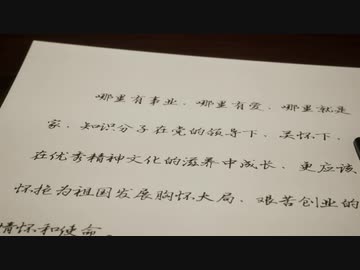 哪里有事业、哪里有爱、哪里就是
家、知识分子在党的领导下、关怀下、
在优秀精神文化的滋养中成长、更应该
怀抱为祖国发展胸怀大局、艰苦创业的
情怀和使命。